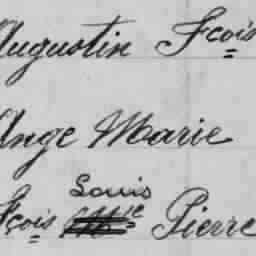 Augustin Fçois
Ange Marie
Louis
Fçois Pierre